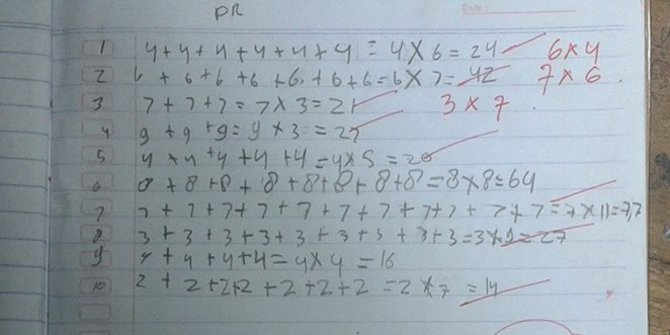 PR
Date:
1 4+4+4+4+4+4 = 4×6 = 24 6×4
2 6+6+6+6+6+6+6=6×7=42 7×6
3 7+7+7=7×3=21 3×7
4 9+9+9=9×3=27
5 4×4+4+4+4=4×5=20
6 8+8+8+8+8+8+8+8=8×8=64
7 7+7+7+7+7+7+7+7+7+7+7=7×11=77
8 3+3+3+3+3+3+3+3+3=3×9=27
9 4+4+4+4=4×4=16
10 2+2+2+2+2+2+2=2×7=14